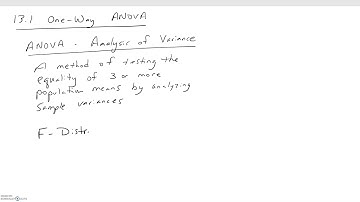 13.1 One-Way ANOVA
ANOVA - Analysis of Variance
A method of testing the
equality of 3 or more
population means by analyzing
sample variances
F-Distr.